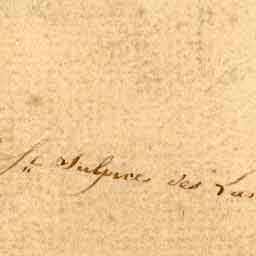 St Sulpice des Lan